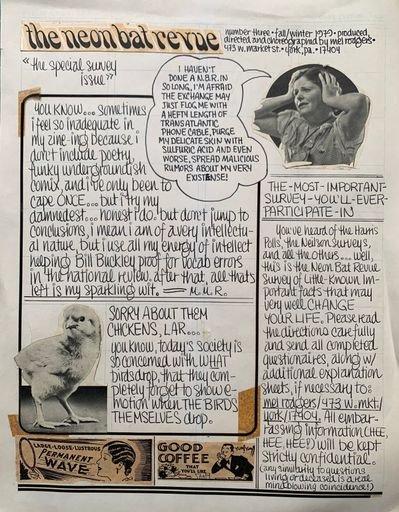 the neon bat revue
number three • fall/winter 1979 • produced,
directed and choreographed by mel rodgers •
473 w. market st. • york, pa. • 17404
"the special survey
issue"
I HAVEN'T
DONE A N.B.R. IN
SO LONG, I'M AFRAID
THE EXCHANGE MAY
JUST FLOG ME WITH
A HEFTY LENGTH OF
TRANSATLANTIC
PHONE CABLE, PURGE
MY DELICATE SKIN WITH
SULFURIC ACID AND EVEN
WORSE, SPREAD MALICIOUS
RUMORS ABOUT MY VERY
EXISTENSE!
YOU KNOW... sometimes
i feel so inadequate in
my zine-ing because i
don't include poetry,
funky undergroundish
comix, and i've only been to
cape ONCE... but i try my
damnedest... honest i do. but don't jump to
conclusions, i mean i am of a very intellectu-
al nature. but i use all my energy of intellect
helping Bill Buckley proof for vocab errors
in the national review. after that, all thats
left is my sparkling wit. — M.M.R.
THE-MOST-IMPORTANT-
SURVEY-YOU'LL-EVER-
PARTICIPATE-IN
You've heard of the Harris
Polls, the Neilson surveys,
and all the others... well,
this is the Neon Bat Revue
Survey of Little-Known Im-
portant facts that may
very well CHANGE
YOUR LIFE. Please read
the directions carefully
and send all completed
questionaires, along w/
additional explantation
sheets, if necessary to:
mel rodgers/473 w. mkt./
york/17404. All embar-
rassing information (HEE,
HEE, HEE!) will be kept
strictly confidential.
(any similarity to questions
living or deceased is a real
mind blowing coincidence!)
SORRY ABOUT THEM
CHICKENS, LAR...
you know, today's society is
so concerned with WHAT
birds drop, that they com-
pletely forget to show e-
motion when THE BIRDS
THEMSELVES drop.
LARGE-LOOSE-LUSTROUS
PERMANENT
WAVE
GOOD
COFFEE
THAT
YOU'LL LIKE